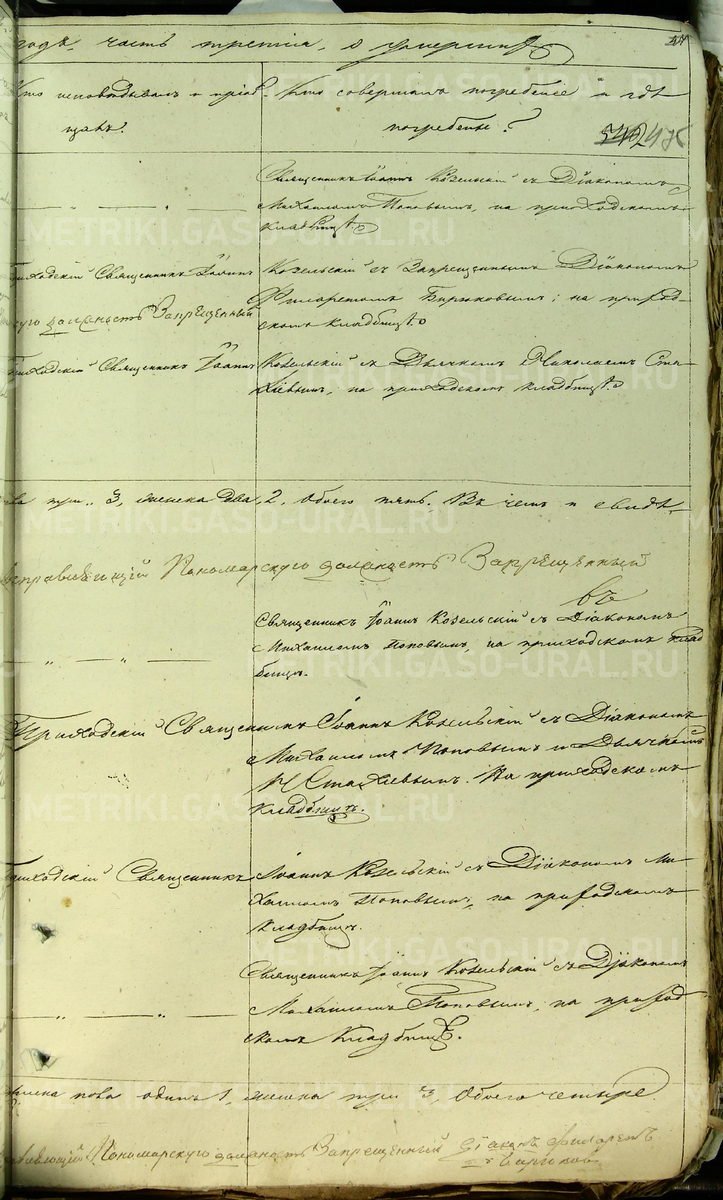 годъ, часть третія, о умершихъ
Кто исповѣдывалъ и пріоб-
щалъ.
Кто совершалъ погребеніе и гдѣ
погребены?
Священникъ Іоаннъ Козельскій съ Діакономъ
Михаиломъ Поповымъ, на приходскомъ
кладбищѣ
Приходскій Священникъ Іоаннъ Козельскій съ Запрещеннымъ Діакономъ
Филаретомъ Бирюковымъ; на приход-
скомъ кладбищѣ
должность Запрещенный
Приходскій Священникъ Іоаннъ Козельскій съ Дьячкомъ Николаемъ Ста-
хіевымъ, на приходскомъ кладбищѣ
три 3, женска два 2, обоего пять. Въ чемъ и свидѣ-
исправляющій Пономарскую должность Запрещенный
Священникъ Іоаннъ Козельскій съ Діакономъ
Михаиломъ Поповымъ, на приходскомъ клад-
бищѣ.
Приходскій Священникъ Іоаннъ Козельскій съ Діакономъ
Михаиломъ Поповымъ и Дьячкомъ
Н Стахіевымъ. На приходскомъ
кладбищѣ.
Приходскій Священникъ Іоаннъ Козельскій съ Діакономъ Ми-
хаиломъ Поповымъ, на приходскомъ
кладбищѣ.
Священникъ Іоаннъ Козельскій съ Діакономъ
Михаиломъ Поповымъ, на приход-
скомъ Кладбищѣ.
пола одинъ 1, женска три 3, Обоего четыре
Пономарскую должность Запрещенный Діаконъ Филаретъ
METRIKI.GASO-URAL.RU